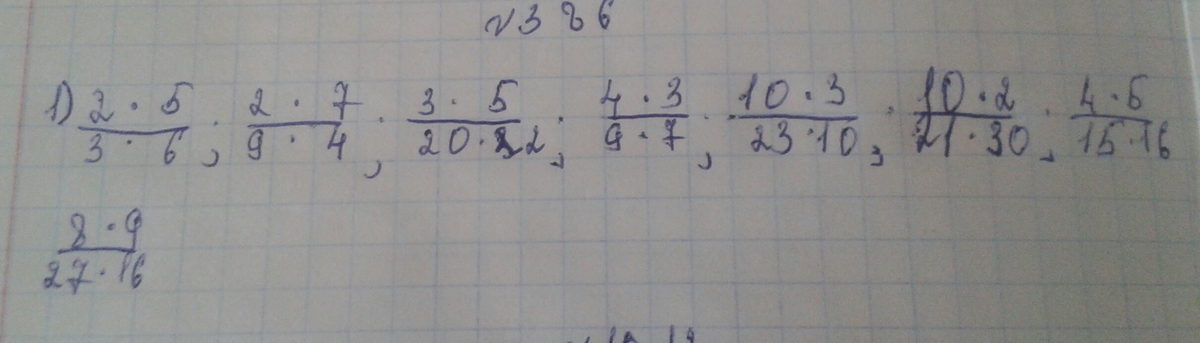 № 386
1) 2 · 5 / 3 · 6 ; 2 · 7 / 9 · 4 ; 3 · 5 / 20 · 2 ; 4 · 3 / 9 · 7 ; 10 · 3 / 23 · 10 ; 10 · 2 / 21 · 30 ; 4 · 5 / 15 · 16
8 · 9 / 27 · 16